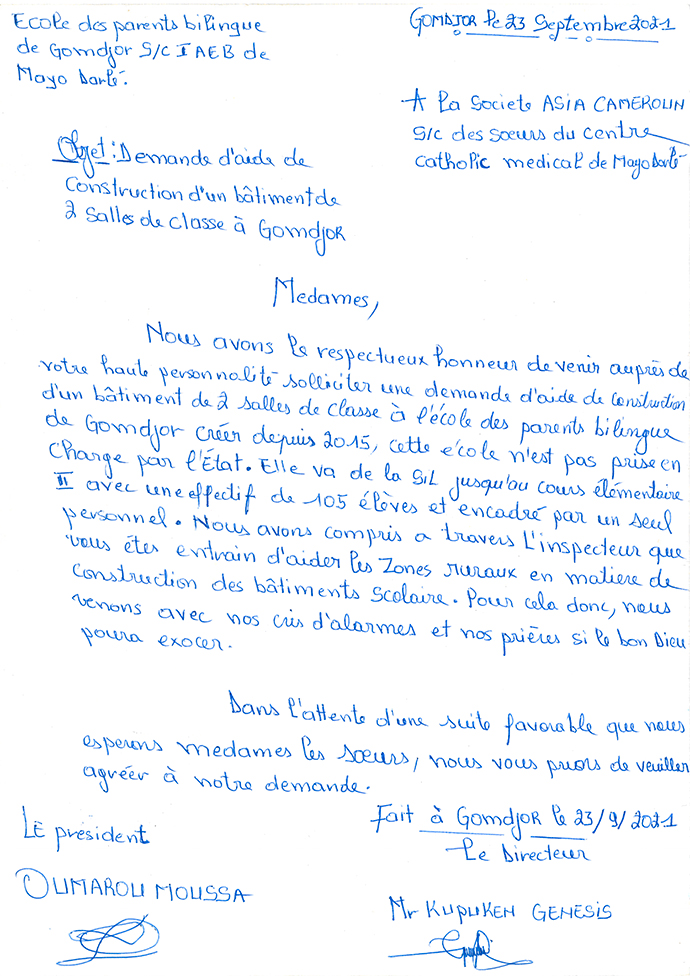 Ecole des parents bilingue
de Gomdjor S/C IAEB de
Mayo Darlé.
GOMDJOR le 23 Septembre 2021
A la Societe ASIA CAMEROUN
S/C des Sœurs du centre
catholic medical de Mayo Darlé
Objet : Demande d'aide de
Construction d'un bâtiment de
2 Salles de classe à GOMDJOR
Medames,
Nous avons le respectueux honneur de venir auprès de
votre haute personnalité solliciter une demande d'aide de construction
d'un bâtiment de 2 salles de classe à l'école des parents bilingue
de Gomdjor créer depuis 2015, cette école n'est pas prise en
Charge par l'État. Elle va de la SIL jusqu'au cours élémentaire
II avec une effectif de 105 élèves et encadré par un seul
personnel. Nous avons compris a travers L'inspecteur que
vous êtes entrain d'aider les Zones ruraux en matiere de
construction des bâtiments Scolaire. Pour cela donc, nous
venons avec nos cris d'alarmes et nos prières si le bon Dieu
poura exocer.
Dans l'attente d'une suite favorable que nous
esperons medames les sœurs, nous vous prions de veuiller
agréer à notre demande.
Fait à GOMDJOR le 23/9/2021
LE président
Le Directeur
OUMAROU MOUSSA
Mr KUPUKEN GENESIS